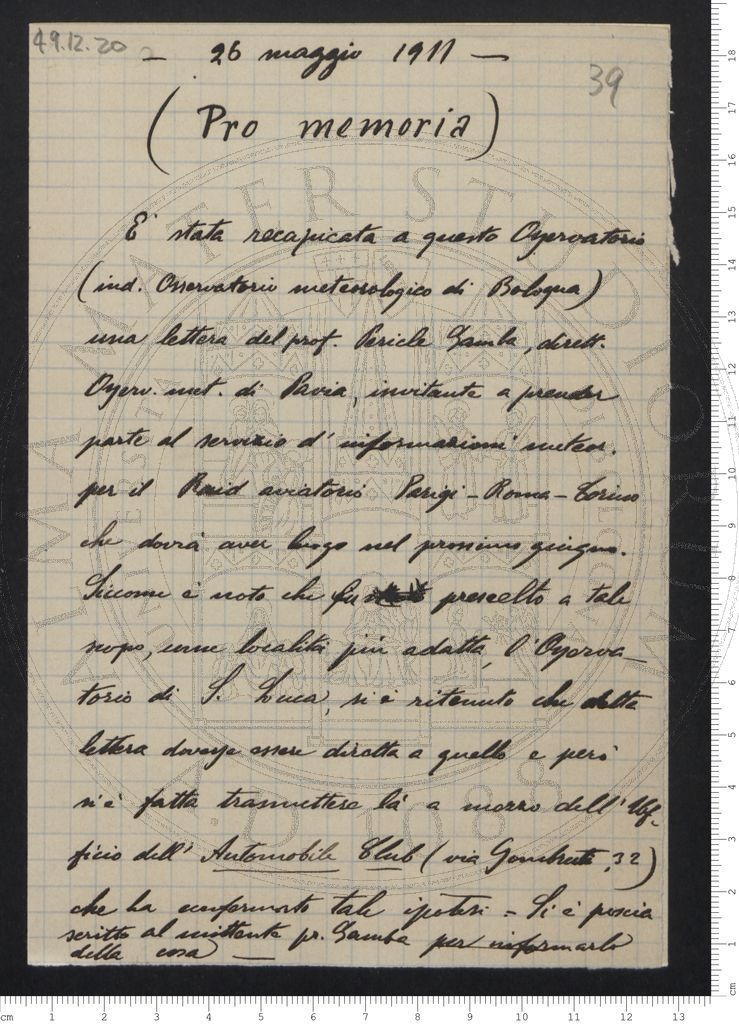 49.12.20
— 26 maggio 1911 —
39
(Pro memoria)
E' stata recapitata a questo Osservatorio
(ind. Osservatorio meteorologico di Bologna)
una lettera del prof. Pericle Gamba, dirett.
Osserv. met. di Pavia, invitante a prender
parte al servizio d'informazioni meteor.
per il Raid aviatorio Parigi-Roma-Torino
che dovrà aver luogo nel prossimo giugno.
Siccome è noto che fu prescelto a tale
scopo, come località più adatta, l'Osserva-
torio di S. Luca, si è ritenuto che detta
lettera dovesse essere diretta a quello e però
si è fatta trasmettere là a mezzo dell'Uf-
ficio dell'Automobile Club (via Gombruti, 32)
che ha confermato tale ipotesi - Si è poscia
scritto al mittente pr. Gamba per informarlo
della cosa —